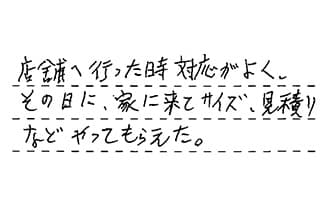 店舗へ行った時対応がよく、
その日に、家に来てサイズ、見積り
などやってもらえた。